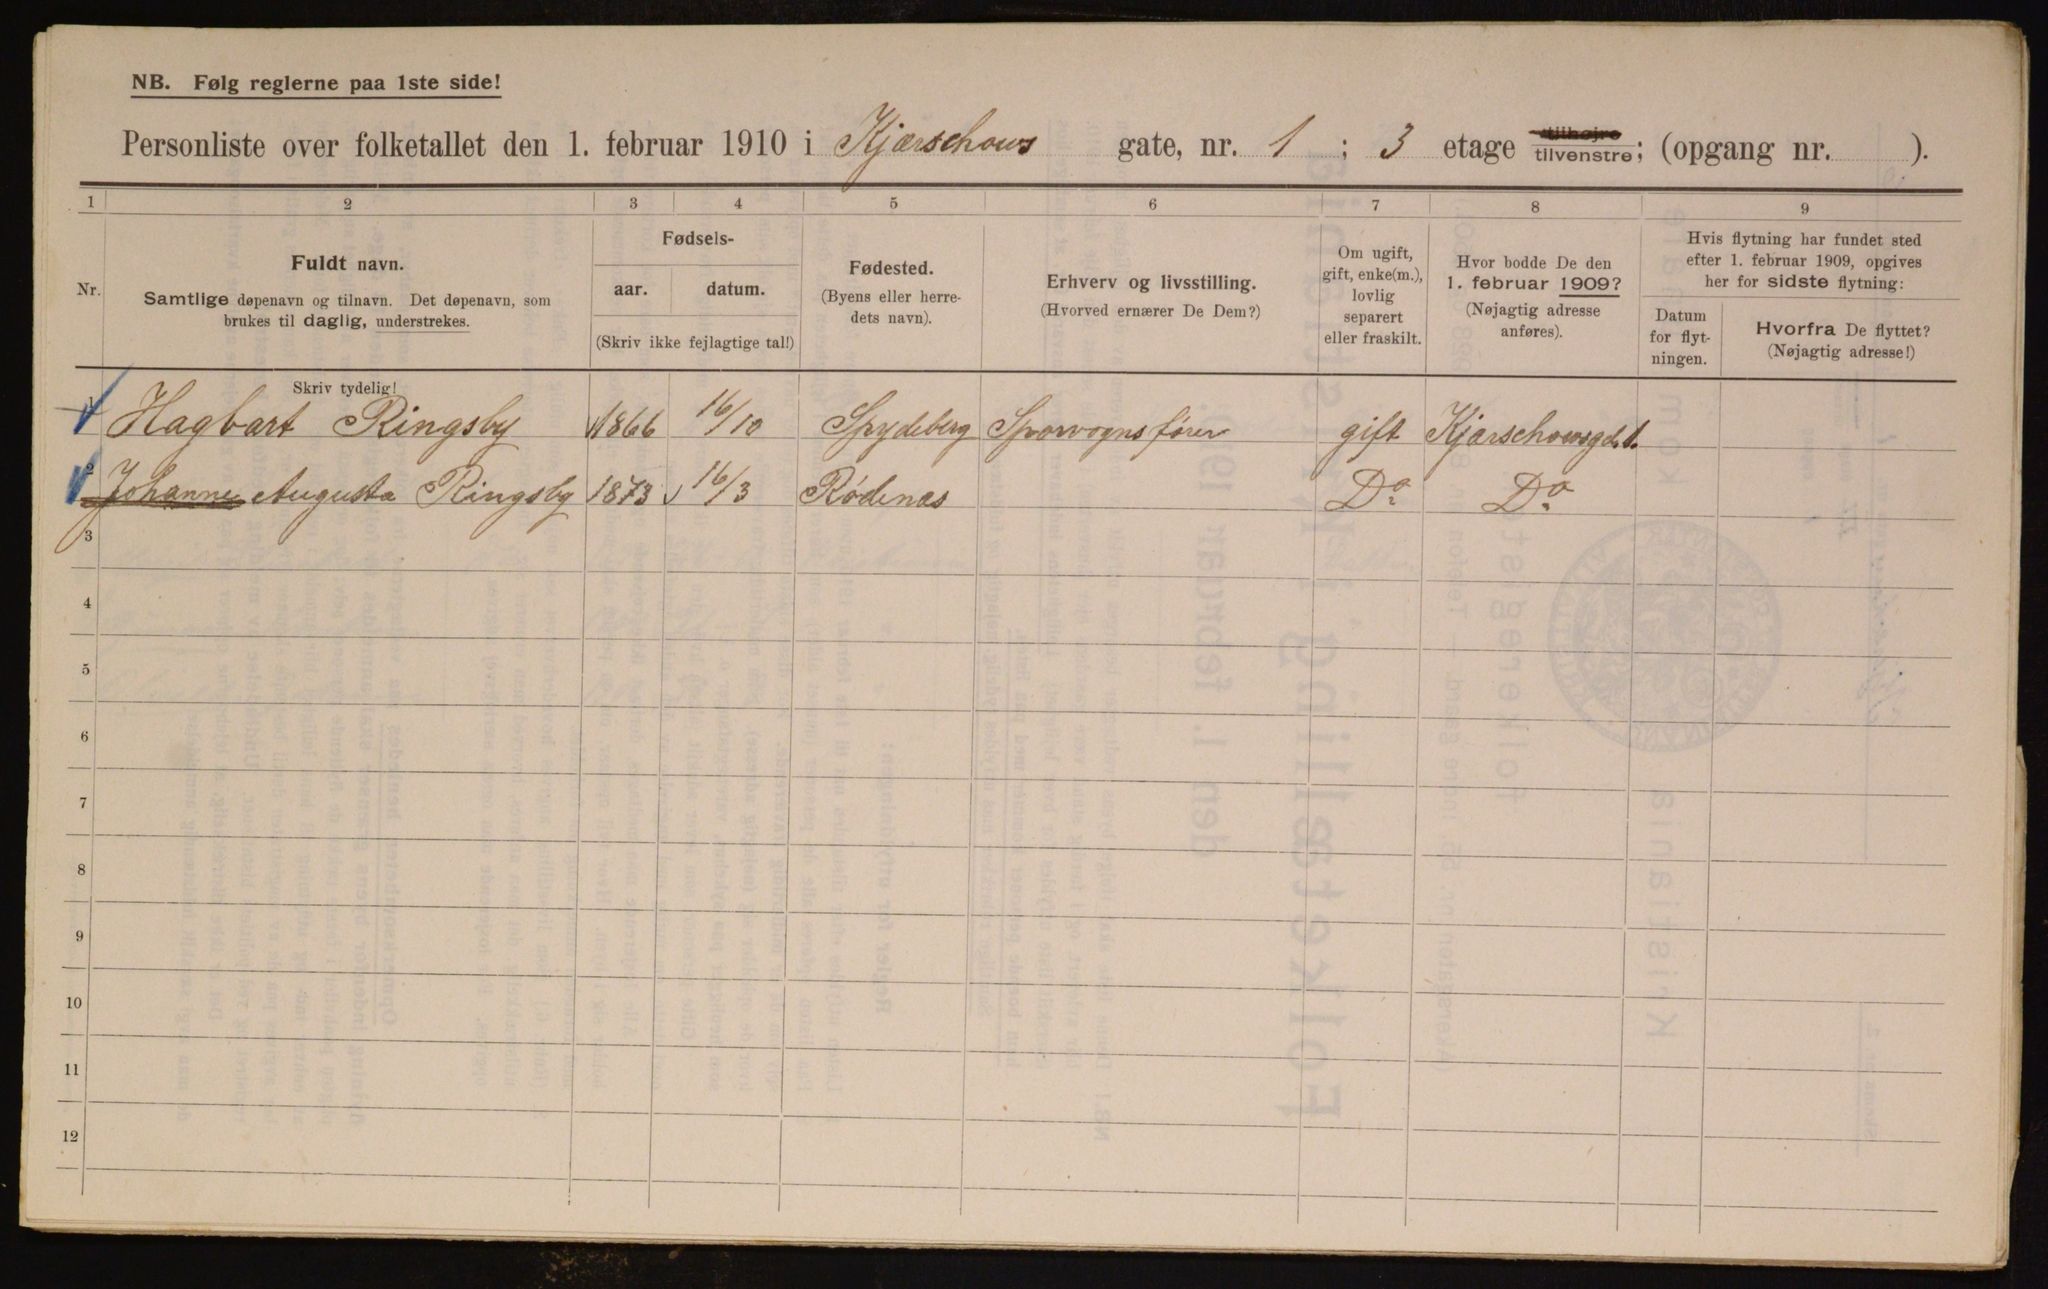 NB. Følg reglerne paa 1ste side!
Personliste over folketallet den 1. februar 1910 i Kjærschows gate, nr. 1 ; 3 etage tilhøjre/tilvenstre; (opgang nr. ).
1 2 3 4 5 6 7 8 9
Nr.
Fuldt navn.
Samtlige døpenavn og tilnavn. Det døpenavn, som
brukes til daglig, understrekes.
Skriv tydelig!
Fødsels-
aar. datum.
(Skriv ikke fejlagtige tal!)
Fødested.
(Byens eller herre-
dets navn).
Erhverv og livsstilling.
(Hvorved ernærer De Dem?)
Om ugift,
gift, enke(m.),
lovlig
separert
eller fraskilt.
Hvor bodde De den
1. februar 1909?
(Nøjagtig adresse
anføres).
Hvis flytning har fundet sted
efter 1. februar 1909, opgives
her for sidste flytning:
Datum
for flyt-
ningen.
Hvorfra De flyttet?
(Nøjagtig adresse!)
1 Hagbart Ringsby 1866 16/10 Spydeberg Sporvognsfører gift Kjærschowsgd. 1.
2 Johanne Augusta Ringsby 1873 16/3 Rødenæs Do Do
3
4
5
6
7
8
9
10
11
12